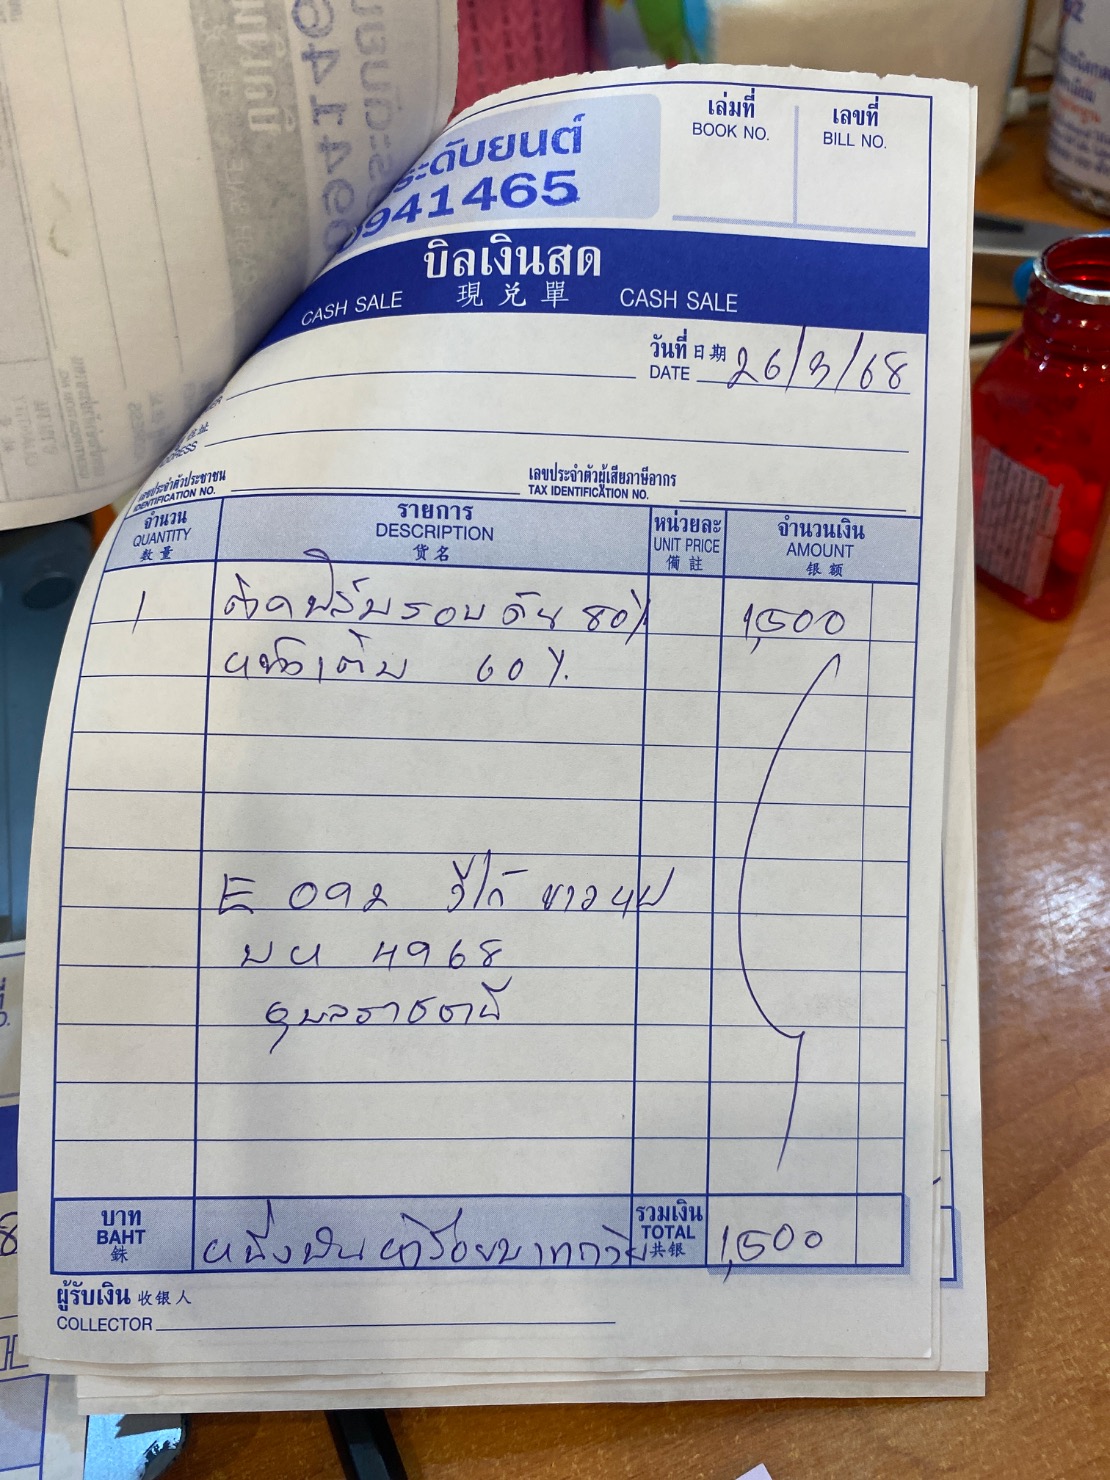 เล่มที่
BOOK NO.
เลขที่
BILL NO.
ระดับยนต์
941465
บิลเงินสด
CASH SALE 現兑單 CASH SALE
วันที่ 日期
DATE 26/3/68
เลขประจำตัวประชาชน
IDENTIFICATION NO.
เลขประจำตัวผู้เสียภาษีอากร
TAX IDENTIFICATION NO.
จำนวน
QUANTITY
数量
รายการ
DESCRIPTION
货名
หน่วยละ
UNIT PRICE
備註
จำนวนเงิน
AMOUNT
银额
1 ติดฟิล์มรอบคัน 80% 1,500
หน้าเต็ม 60%
E 092 วีโก้ ขาว 4ป
บห 4968
อุบลราชธานี
บาท
BAHT
銖
หนึ่งพันห้าร้อยบาทถ้วน
รวมเงิน
TOTAL
共银
1,500
ผู้รับเงิน 收银人
COLLECTOR